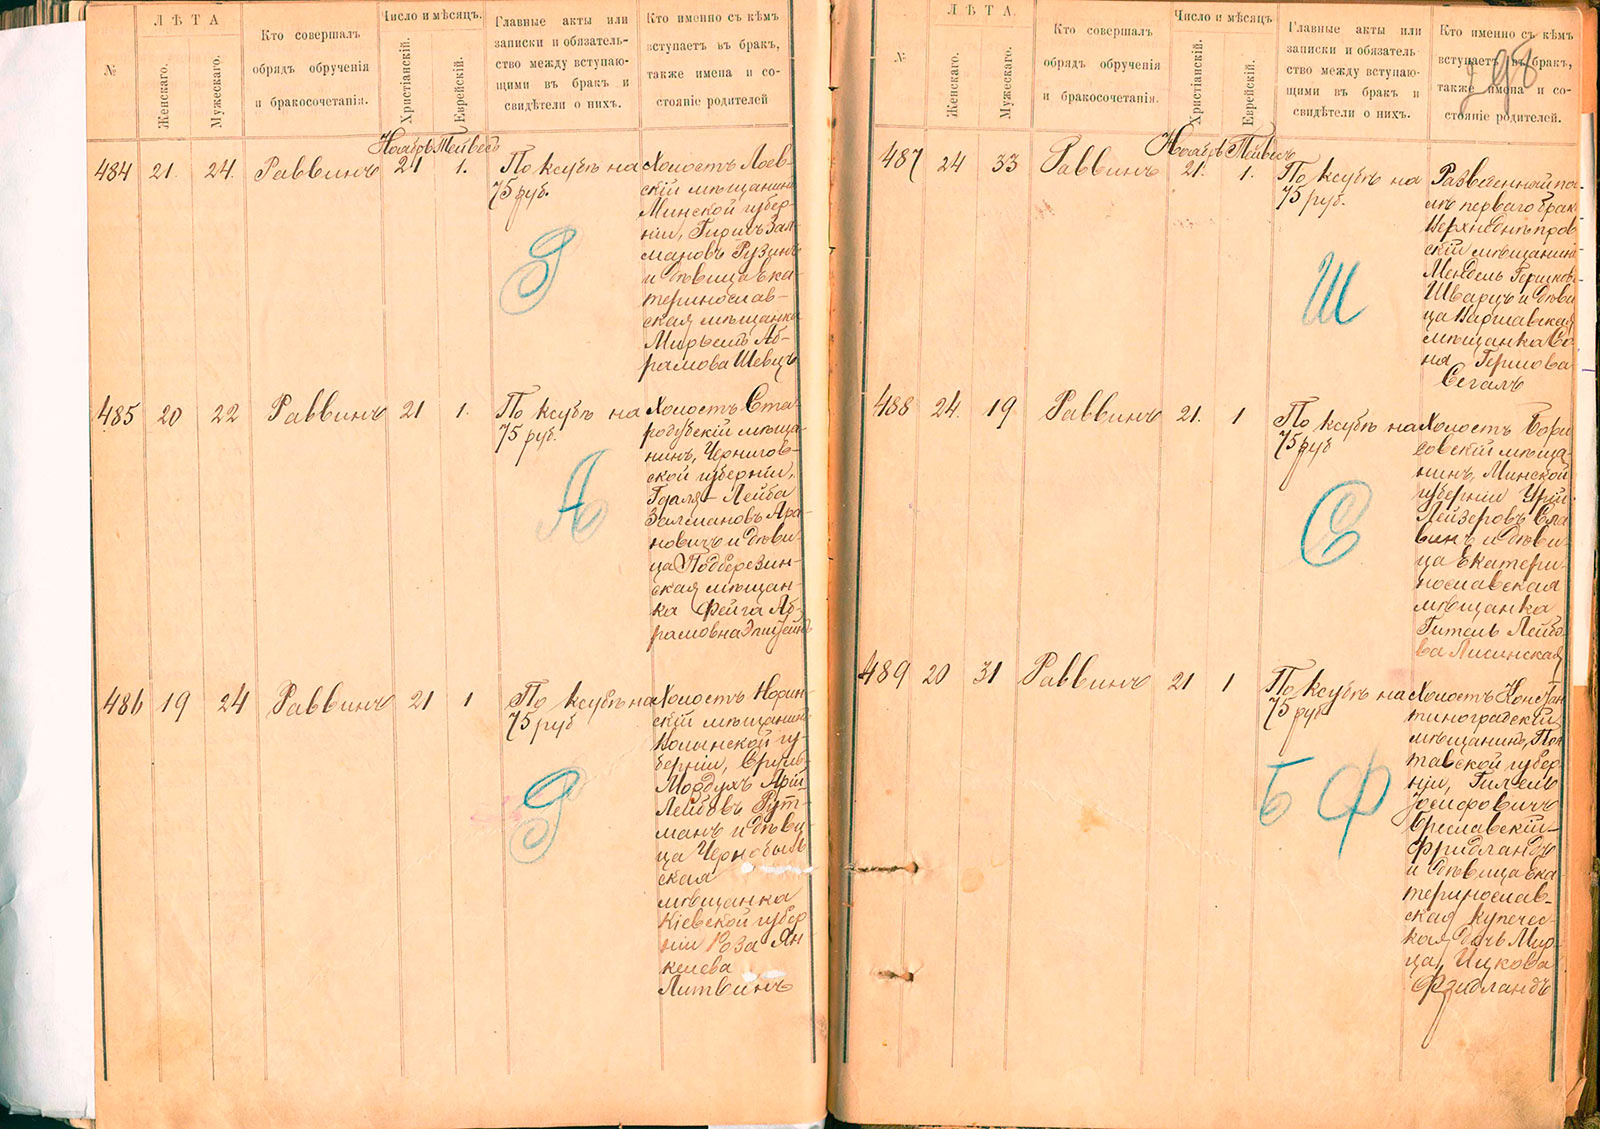 №
ЛѢТА
Женскаго.
Мужескаго.
Кто совершалъ
обрядъ обрученія
и бракосочетанія.
Число и мѣсяцъ.
Христіанскій.
Еврейскій.
Главные акты или
записки и обязатель-
ство между вступаю-
щими въ бракъ и
свидѣтели о нихъ.
Кто именно съ кѣмъ
вступаетъ въ бракъ,
также имена и со-
стояніе родителей
Ноябрь Тейвесъ
484 21. 24. Раввинъ 21 1.
По ксубѣ на
75 руб.
Холостъ Лоев-
скій мѣщанинъ
Минской губер-
ніи, Гиршъ Зал-
мановъ Рузинъ
и дѣвица Ека-
теринослав-
ская мѣщанка
Мирьемъ Аб-
рамова Шевцъ
Р
485 20 22 Раввинъ 21 1.
По ксубѣ на
75 руб.
Холостъ Ста-
родубскій мѣща-
нинъ, Чернигов-
ской губерніи,
Гдаля-Лейба
Залмановъ Ара-
новичъ и дѣви-
ца Подберезин-
ская мѣщан-
ка Фейга Аб-
рамовна Эпштейнъ
А
486 19 24 Раввинъ 21 1
По ксубѣ на
75 руб
Холостъ Норин-
скій мѣщанинъ
Волынской гу-
берніи, Сруль
Мордухъ Арій
Лейбовъ Рут-
манъ и дѣви-
ца Чернобыль
ская
мѣщанка
Кіевской губер
ніи Роза Ян-
келева
Литвинъ
Р
№
ЛѢТА.
Женскаго.
Мужескаго.
Кто совершалъ
обрядъ обрученія
и бракосочетанія.
Число и мѣсяцъ.
Христіанскій.
Еврейскій.
Главные акты или
записки и обязатель-
ство между вступаю-
щими въ бракъ и
свидѣтели о нихъ.
Кто именно съ кѣмъ
вступаетъ въ бракъ,
также имена и со-
стояніе родителей.
298
Ноябрь Тейвесъ
487 24 33 Раввинъ 21. 1.
По ксубѣ на
75 руб.
Разведенный по-
слѣ перваго брака
Верхнеднѣпров
скій мѣщанинъ
Мендель Гершковъ
Шварцъ и дѣви
ца Варшавская
мѣщанка Со
ня Гершова
Сегалъ
Ш
488 24. 19 Раввинъ 21. 1
По ксубѣ на
75 руб
Холостъ Бори
совскій мѣща-
нинъ, Минской
губерніи Урій
Лейзеровъ Сла
винъ и дѣви-
ца Екатери-
нославская
мѣщанка
Гитель Лейбо
ва Лисинская
С
489 20 31 Раввинъ 21 1
По ксубѣ на
75 руб
Холостъ Констан
тиноградскій
мѣщанинъ, Пол
тавской губер
ніи, Гилель
Іосифовичъ
Бреславскій-
Фридландъ
и дѣвица Ека
теринослав-
ская купечес-
кая дочь Мир-
ца, Ицкова
Фридландъ
Б Ф